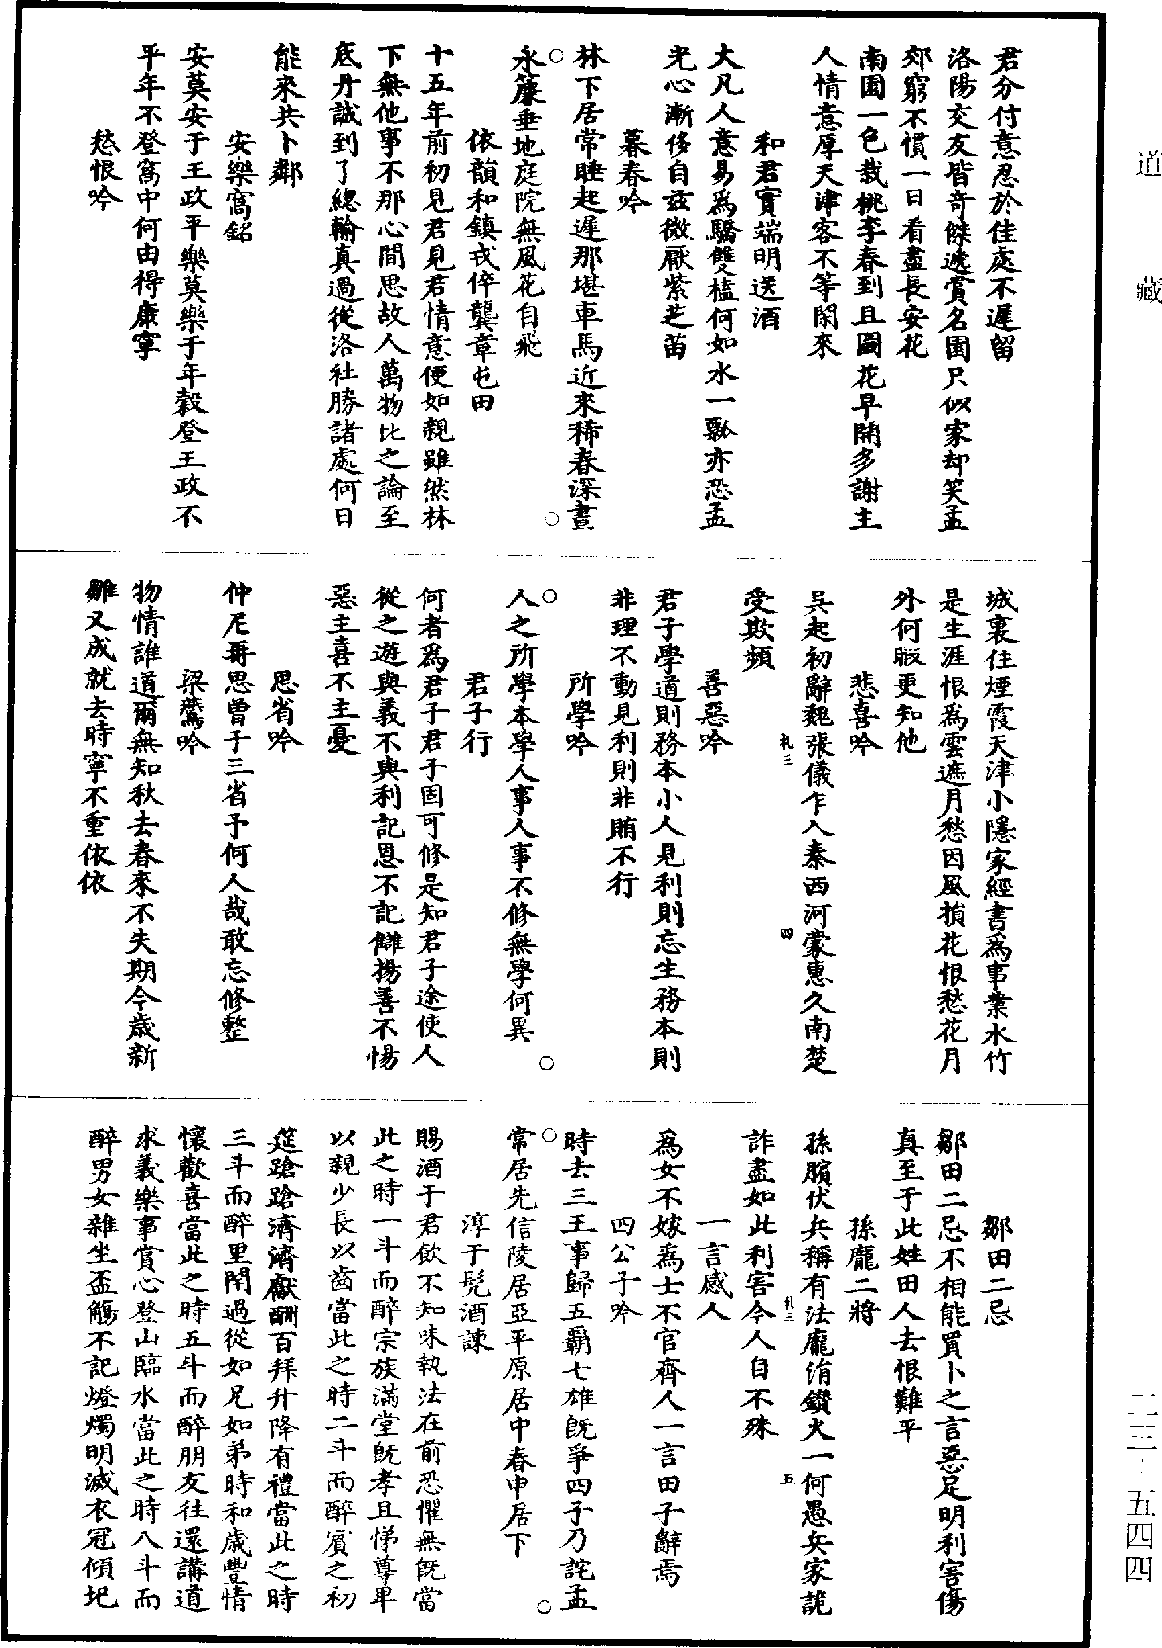 道藏
君分付意忍於佳處不遲留
洛陽交友皆奇傑遞賞名園只似家却笑孟
郊窮不慣一日看盡長安花
南園一色栽桃李春到且圖花早開多謝主
人情意厚天津客不等閑來
和君實端明送酒
大凡人意易為驕雙榼何如水一瓢亦恐孟
光心漸侈自兹微厭紫芝苗
暮春吟
林下居常睡起遲那堪車馬近來稀春深晝
永簾垂地庭院無風花自飛
依韻和鎮戎倅龔章屯田
十五年前初見君見君情意便如親雖然林
下無他事不那心間思故人萬物比之論至
底丹誠到了總輸真過從洛社勝諸處何日
能來共卜鄰
安樂窩銘
安莫安于王政平樂莫樂于年穀登王政不
平年不登窩中何由得康寧
愁恨吟
城裏住煙霞天津小隱家經書為事業水竹
是生涯恨為雲遮月愁因風損花恨愁花月
外何暇更知他
悲喜吟
吳起初辭魏張儀乍入秦西河蒙惠久南楚
受欺頻
善惡吟
君子學道則務本小人見利則忘生務本則
非理不動見利則非賄不行
所學吟
人之所學本學人事人事不修無學何異
君子行
何者為君子君子固可修是知君子途使人
從之遊與義不與利記恩不記讎揚善不惕
惡主喜不主憂
思省吟
仲尼再思曾子三省予何人哉敢忘修整
梁鷰吟
物情誰道爾無知秋去春來不失期今歲新
雛又成就去時寧不重依依
鄒田二忌
鄒田二忌不相能買卜之言惡足明利害傷
真至于此姓田人去恨難平
孫龐二將
孫臏伏兵稱有法龐涓鑽火一何愚兵家詭
詐盡如此利害令人自不殊
一言感人
為女不嫁為士不官齊人一言田子辭焉
四公子吟
時去三王事歸五霸七雄既爭四子乃詫孟
常居先信陵居亞平原居中春申居下
淳于髡酒諫
賜酒于君飲不知味執法在前恐懼無既當
此之時一斗而醉宗族滿堂既孝且悌尊卑
以親少長以齒當此之時二斗而醉賓之初
筵蹌蹌濟濟獻酬百拜升降有禮當此之時
三斗而醉里閈過從如兄如弟時和歲豐情
懷歡喜當此之時五斗而醉朋友往還講道
求義樂事賞心登山臨水當此之時八斗而
醉男女雜坐盃觴不記燈燭明滅衣冠傾圮
二三·五四四